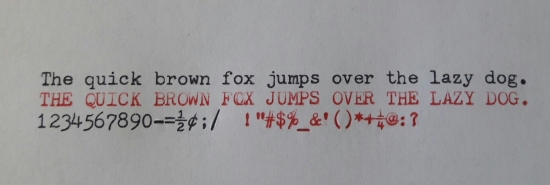 The quick brown fox jumps over the lazy dog.
THE QUICK BROWN FOX JUMPS OVER THE LAZY DOG.
1234567890-=½¢;/ !"#$%_&'()*+¼@:?